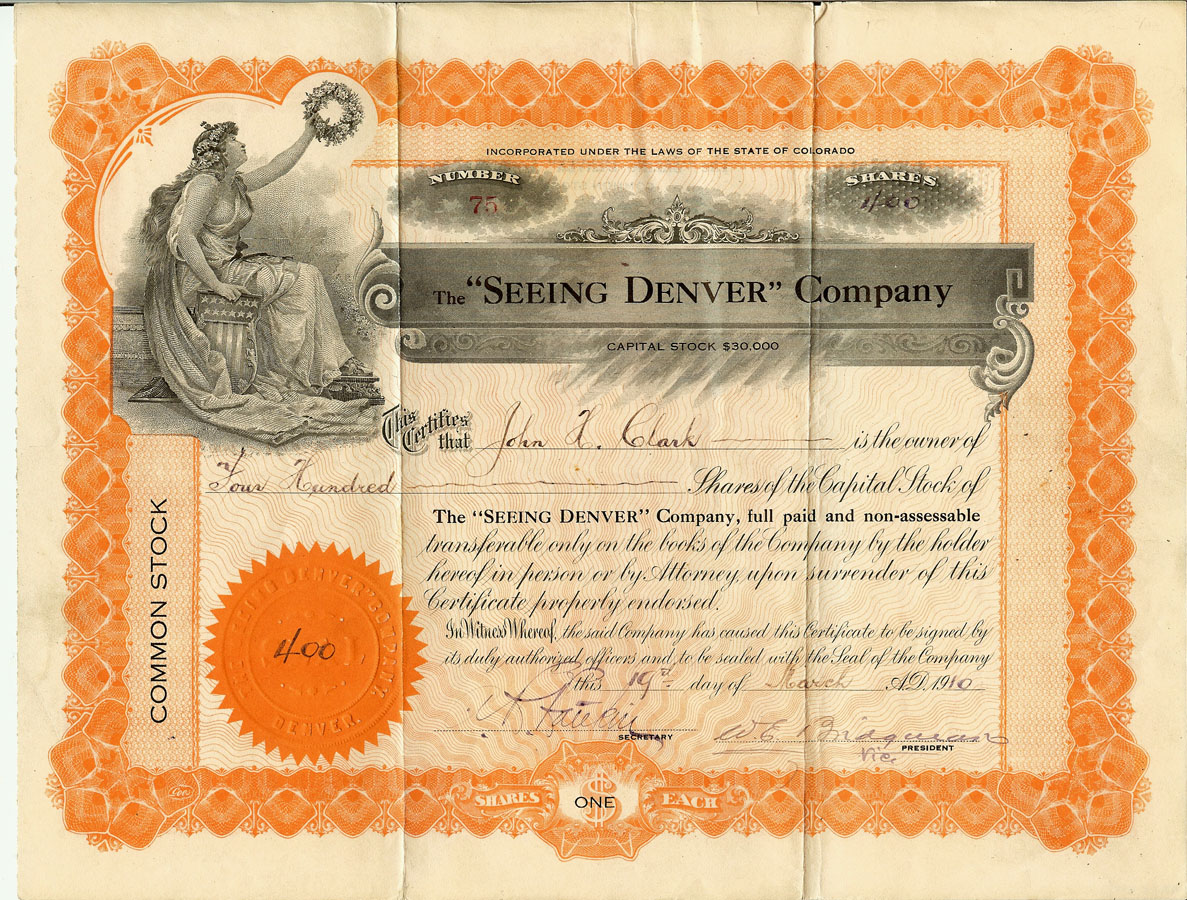 INCORPORATED UNDER THE LAWS OF THE STATE OF COLORADO
NUMBER
75
SHARES
400
The "SEEING DENVER" Company
CAPITAL STOCK $30,000
This Certifies that John H. Clark is the owner of
Four Hundred Shares of the Capital Stock of
The "SEEING DENVER" Company, full paid and non-assessable
transferable only on the books of the Company by the holder
hereof in person or by Attorney, upon surrender of this
Certificate properly endorsed.
In Witness Whereof, the said Company has caused this Certificate to be signed by
its duly authorized officers and to be sealed with the Seal of the Company
this 19th day of March A.D. 1910
SECRETARY
Vice PRESIDENT
COMMON STOCK
DENVER.
400
SHARES
ONE
$
EACH